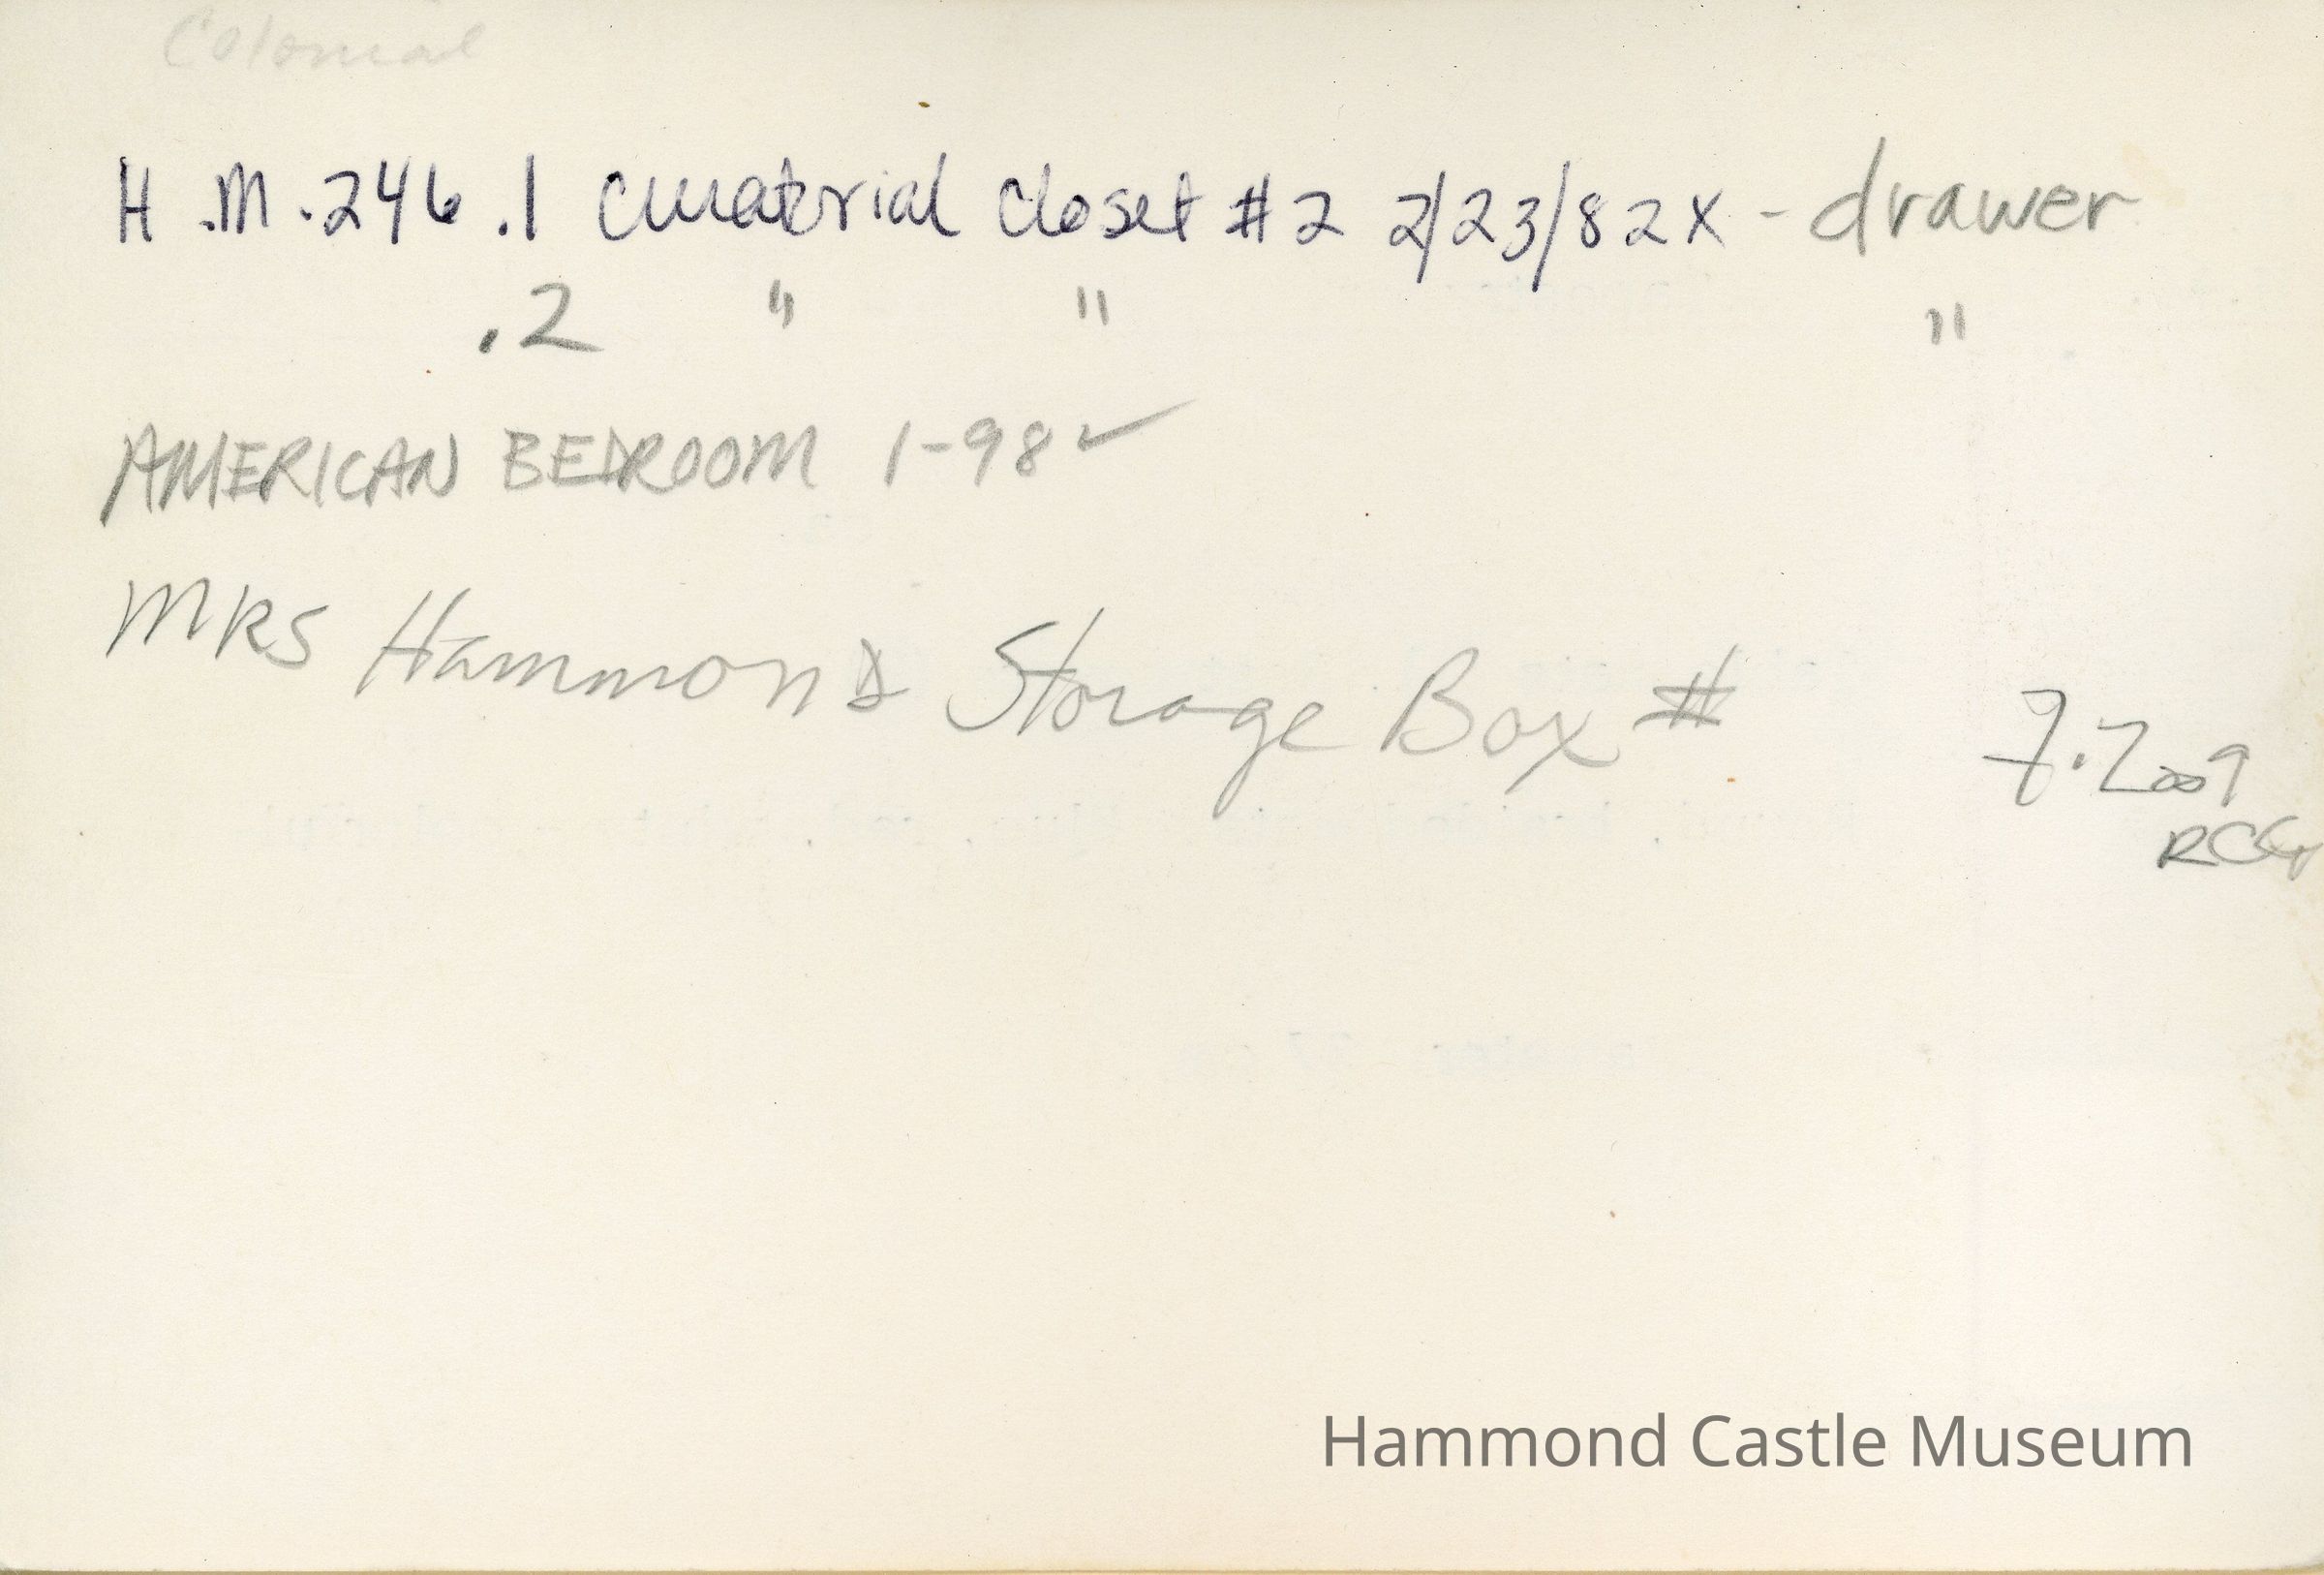 Colonial
H.M.246.1 Curatorial Closet #2 2/23/82X - drawer
.2 " " "
AMERICAN BEDROOM 1-98 ✓
MRS Hammond Storage Box #
7.2009
RCG
Hammond Castle Museum